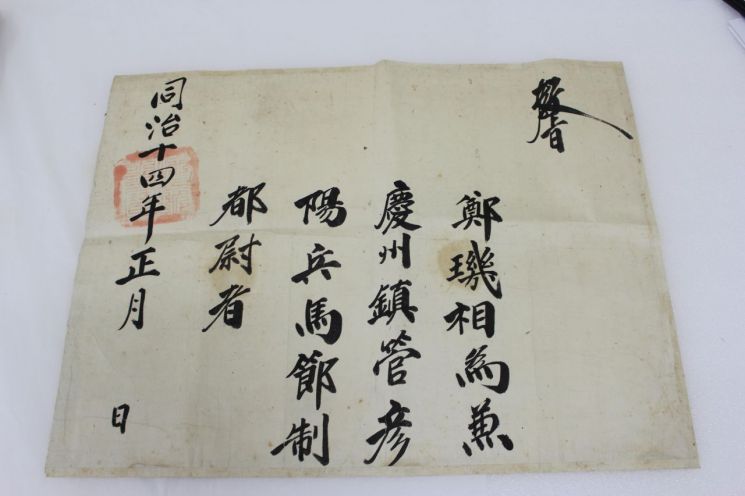 教旨
鄭璣相爲兼
慶州鎮管彦
陽兵馬節制
都尉者
同治十四年正月　日